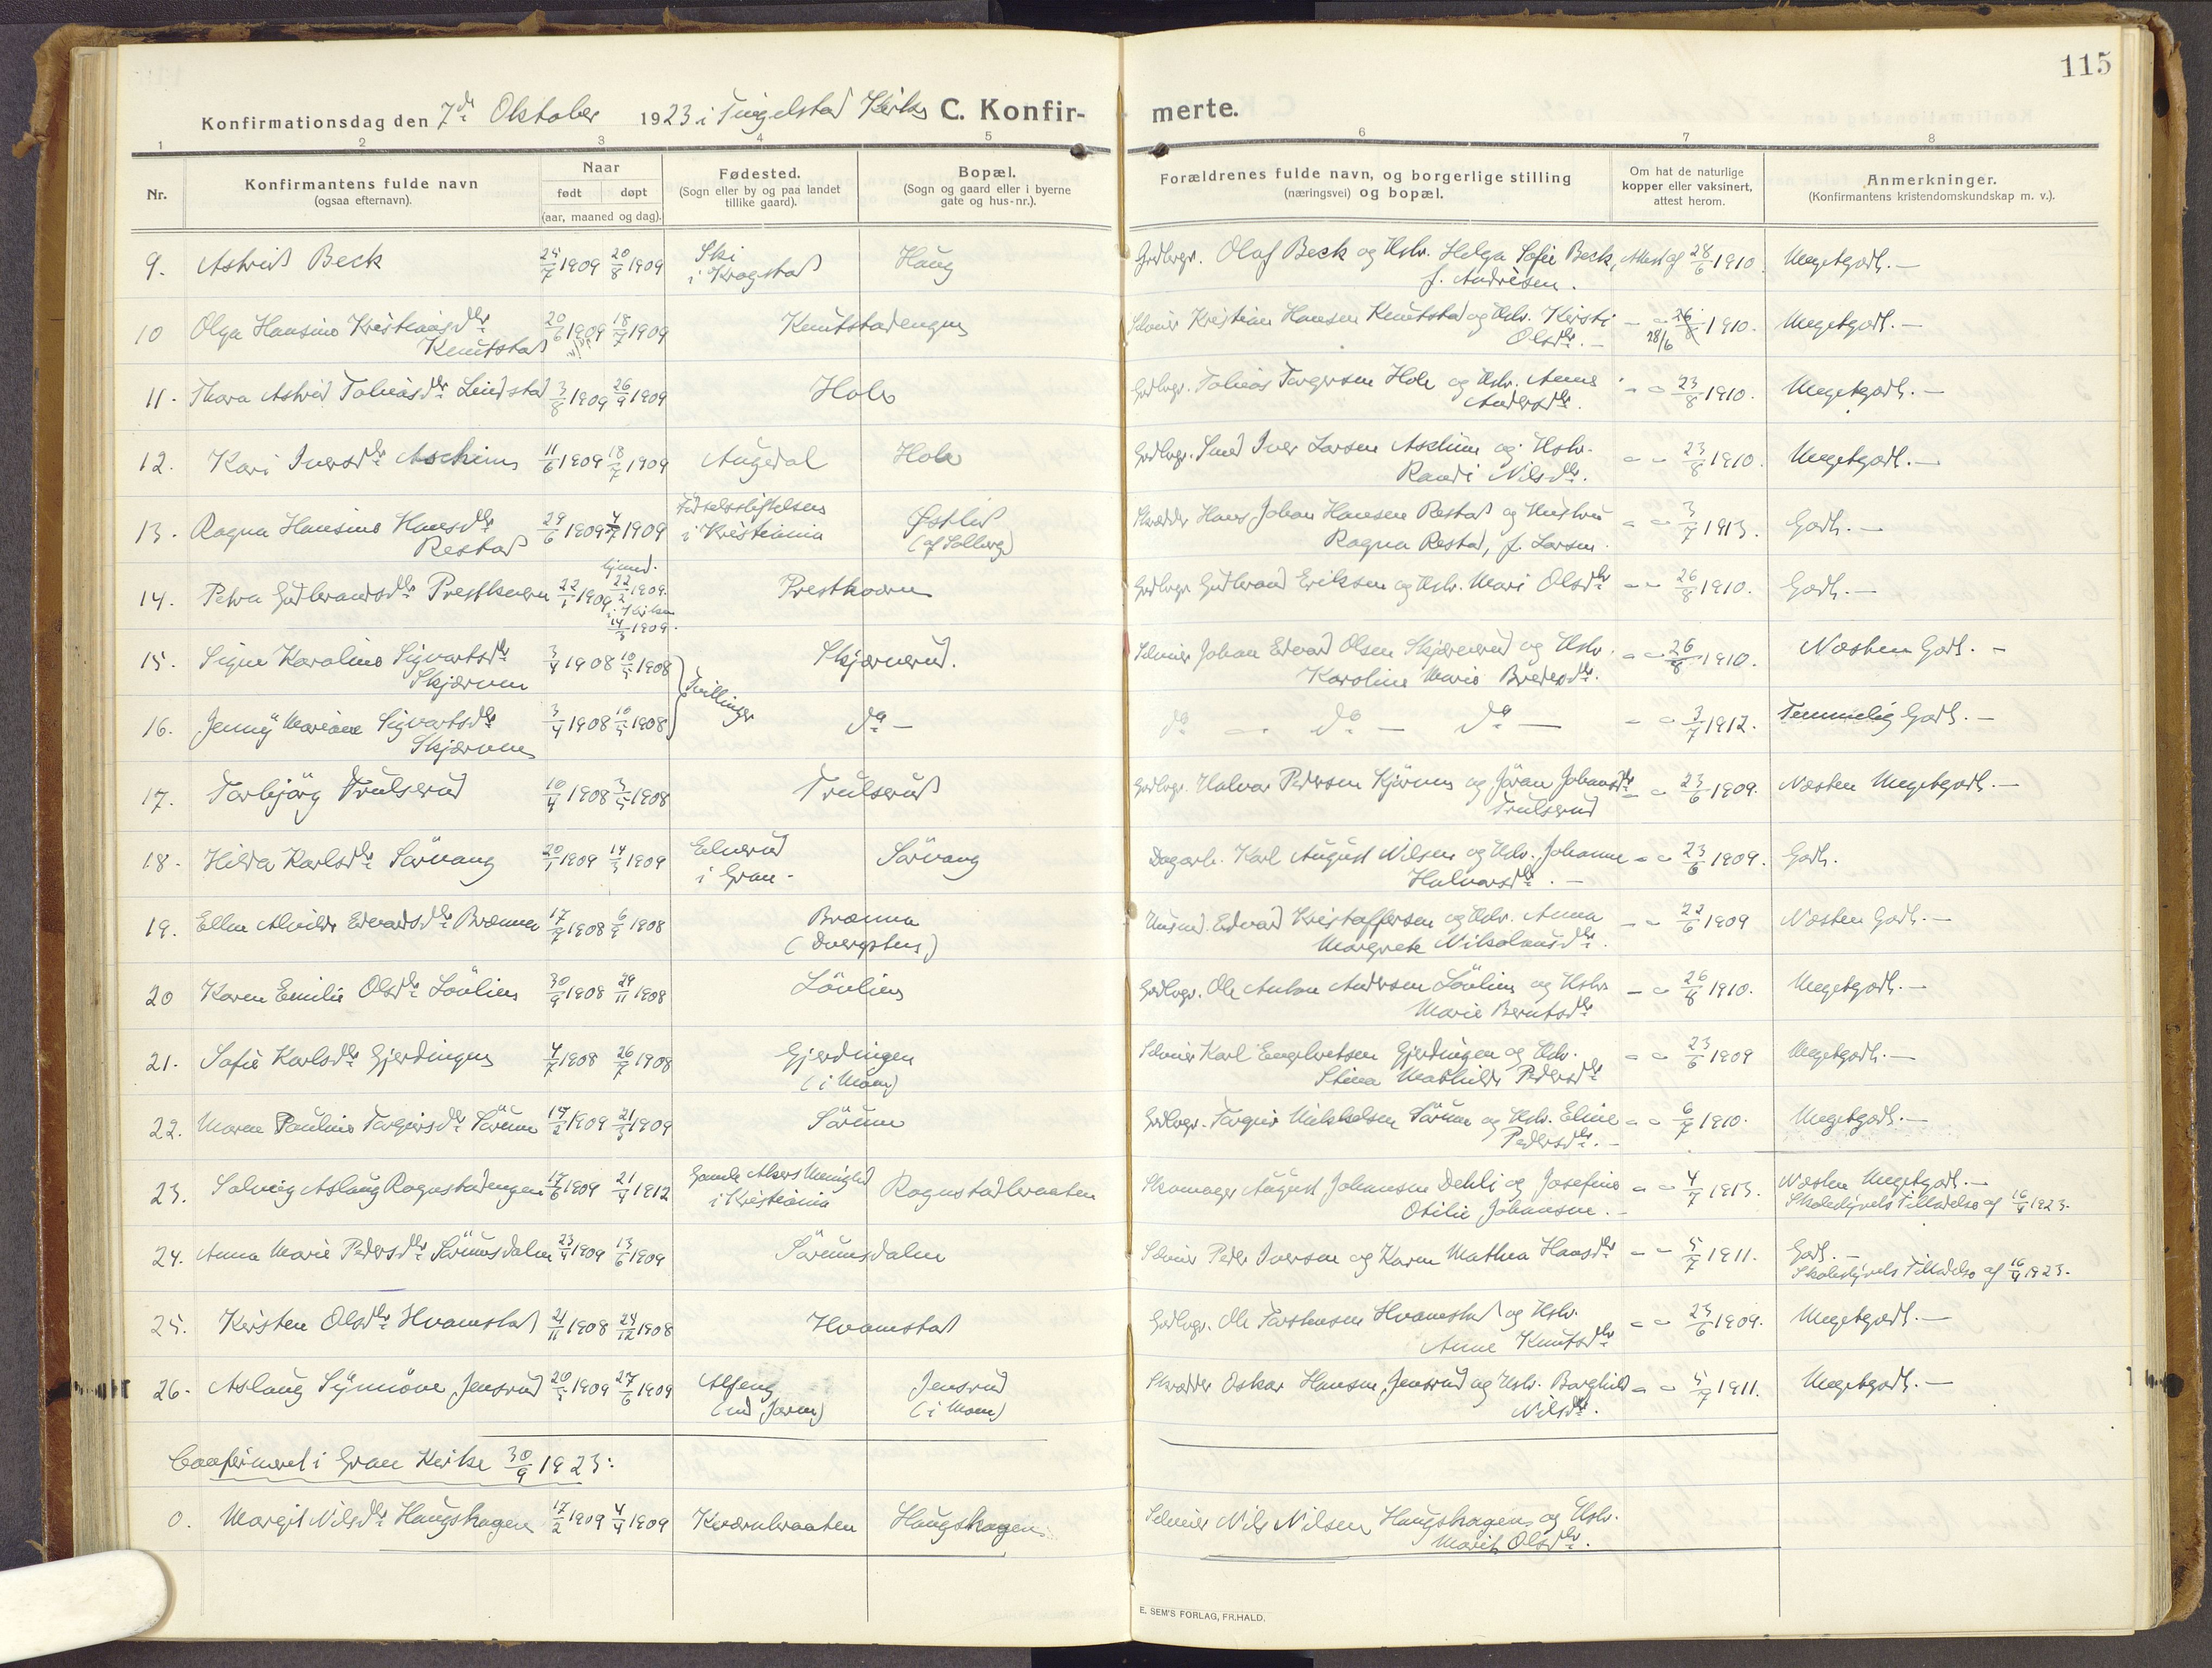 115
Konfirmationsdag den 7de Oktober 1923 i Tingelstad Kirke C. Konfir- merte.
1 2 3 4 5 6 7 8
Nr. Konfirmantens fulde navn (ogsaa efternavn). Naar født døpt (aar, maaned og dag). Fødested. (Sogn eller by og paa landet tillike gaard). Bopæl. (Sogn og gaard eller i byerne gate og hus-nr.). Forældrenes fulde navn, og borgerlige stilling (næringsvei) og bopæl. Om hat de naturlige kopper eller vaksinert, attest herom. Anmerkninger. (Konfirmantens kristendomskundskap m. v.).
9. Astrid Beck 24/7 1909 20/8 1909 Ski i Kragstad Haug Grdbrgr. Olaf Beck og Hstr. Helga Sofie Beck, f. Andresen. Attest af 28/6 1910. Megetgodt.—
10 Olga Hansine Kristiansdtr Knutstad 20/6 1909 18/7 1909 Knutstadengen Selveier Kristian Hansen Knutstad og Hstr. Kirsti Olsdtr.— 26/8 28/6 1910. Megetgodt.—
11. Thora Astrid Tobiasdtr Lindstad 3/8 1909 26/9 1909 Hole Grdbrgr. Tobias Torgersen Hole og Hstr. Anne Andersdtr. 23/8 1910. Megetgodt.—
12. Kari Iversdtr Aschim 11/6 1909 18/7 1909 Augedal Hole Grdbrgr. Smed Iver Larsen Aschim og Hstr. Randi Nilsdtr. 23/8 1910. Megetgodt.—
13. Ragna Hansine Hansdtr Restad 29/6 1909 4/7 1909 Fødselsstiftelsen i Kristiania Østlid (af Solberg) Skrædder Hans Johan Hansen Restad og Hustru Ragna Restad, f. Larsen. 3/7 1913. Godt.—
14. Petra Gudbrandsdtr Prestkvern 22/1 1909 hjemd. 22/2 1909. i Kirken 14/3 1909. Prestkværn Grdbrgr Gudbrand Eriksen og Hstr. Mari Olsdtr 26/8 1910. Godt.—
15. Signe Karoline Sigvartsdtr Skjærven 3/4 1908 10/5 1908 Tvillinger Skjærverud. Selveier Johan Edvard Olsen Skjærverud og Hstr. Karoline Marie Bredesdtr. 26/8 1910. Næsten Godt.—
16. Jenny Mariane Sigvartsdtr Skjærven 3/4 1908 10/5 1908 do— do — do — do — 3/7 1912. Temmelig Godt.—
17. Torbjörg Trulserud 10/4 1908 3/5 1908 Trulserud Grdbrgr. Halvor Pedersen Kjørven og Jöran Johansdtr Trulserud 23/6 1909. Næsten Megetgodt.—
18. Hilda Karlsdtr Sörvang 20/1 1909 14/3 1909 Elnerud i Gran. Sörvang Dagarb. Karl August Nilsen og Hstr. Johanne Halvorsdtr.— 23/6 1909. Godt.
19. Ellen Alvilde Edvardsdtr Brænna 17/7 1908 6/9 1908 Brænna (Dvergsten) Husmd. Edvard Kristoffersen og Hstr. Anna Margrete Nikolausdtr. 22/6 1909 Næsten Godt.—
20 Karen Emilie Olsdtr Lövlien 30/9 1908 29/11 1908 Lövlien Grdbrgr. Ole Anton Andersen Lövlien og Hstr Marie Berntsdtr 26/8 1910. Megetgodt.—
21. Sofie Karlsdtr Gjerdingen 4/7 1908 26/7 1908 Gjerdingen (i Moen) Selveier Karl Engebretsen Gjerdingen og Hstr. Stina Mathilde Pedersdtr 23/6 1909 Megetgodt.—
22. Maren Pauline Torgeirsdtr Sörum 14/2 1909 21/3 1909 Sörum Grdbrgr. Torgeir Mikkelsen Sörum og Hstr. Eline Pedersdtr.— 6/7 1910. Megetgodt.—
23. Solveig Aslaug Rognstadengen 17/6 1909 21/4 1912 Gamle Akers Menighed i Kristiania Rognstadbraaten Skomager August Johansen Dehli og Josefine Otilie Johansen.— 4/7 1913. Næsten Megetgodt.— Skolestyrets Tilladelse af 16/9 1923.
24. Anna Marie Pedersdtr Sörumsdalen 23/4 1909 13/6 1909 Sörumsdalen Selveier Peder Iversen og Karen Mathea Hansdtr 5/7 1911. Godt.— Skolestyrets Tilladelse af 16/9 1923.
25. Kirsten Olsdtr Hvamstad 21/11 1908 24/12 1908 Hvamstad Grdbrgr. Ole Torstensen Hvamstad og Hstr. Anne Knutsdtr 23/6 1909. Megetgodt.—
26. Aslaug Synnöve Jensrud 20/5 1909 27/6 1909 Alfeng (ved Jaren) Jensrud (i Moen) Skrædder Oskar Hansen Jensrud og Hstr. Borghild Nilsdtr. 5/7 1911. Megetgodt.—
Confirmeret i Gran Kirke 30/9 1923:
0. Margit Nilsdtr Haugshagen 17/2 1909 4/4 1909 Kværnbraaten Haugshagen Selveier Nils Nilsen Haugshagen og Hstr. Marit Olsdtr.
E. SEM'S FORLAG, FR.HALD.